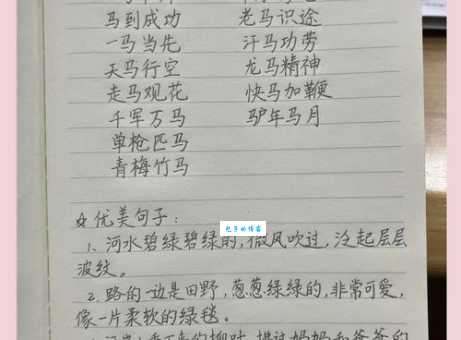 马到成功 老马识途
一马当先 汗马功劳
天马行空 龙马精神
走马观花 快马加鞭
千军万马 驴年马月
单枪匹马
青梅竹马
☆优美句子：
1、河水碧绿碧绿的，微风吹过，泛起层层
波纹。
2、路的一边是田野，葱葱绿绿的，非常可爱，
像一片柔软的绿毯。